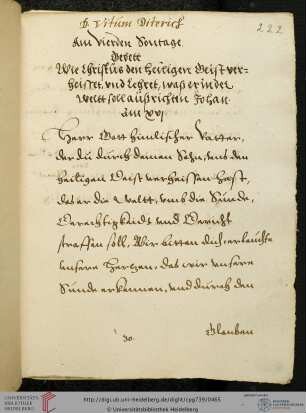 D Vitum Diterich
222
Am Vierden Sontage
Gebett
Wie Christus den heiligen Geist ver-
heisset, vnd Lehret, waß er in der
Weltt soll außrichten Johan
Am XVI
Herr Gott himlischer Vatter,
der du durch deinen Sohn, vns den
heiligen Geist verheissen hast,
das er die Weltt, vmb die Sünde,
Gerechtigkeit vnd Gericht
straffen soll, Wir bitten dich erleuchte
vnsere Hertzen, das wir vnsere
Sünde erkennen, vnd durch den
Glauben
UNIVERSITÄTS-
BIBLIOTHEK
HEIDELBERG
http://digi.ub.uni-heidelberg.de/diglit/cpg739/0465
© Universitätsbibliothek Heidelberg